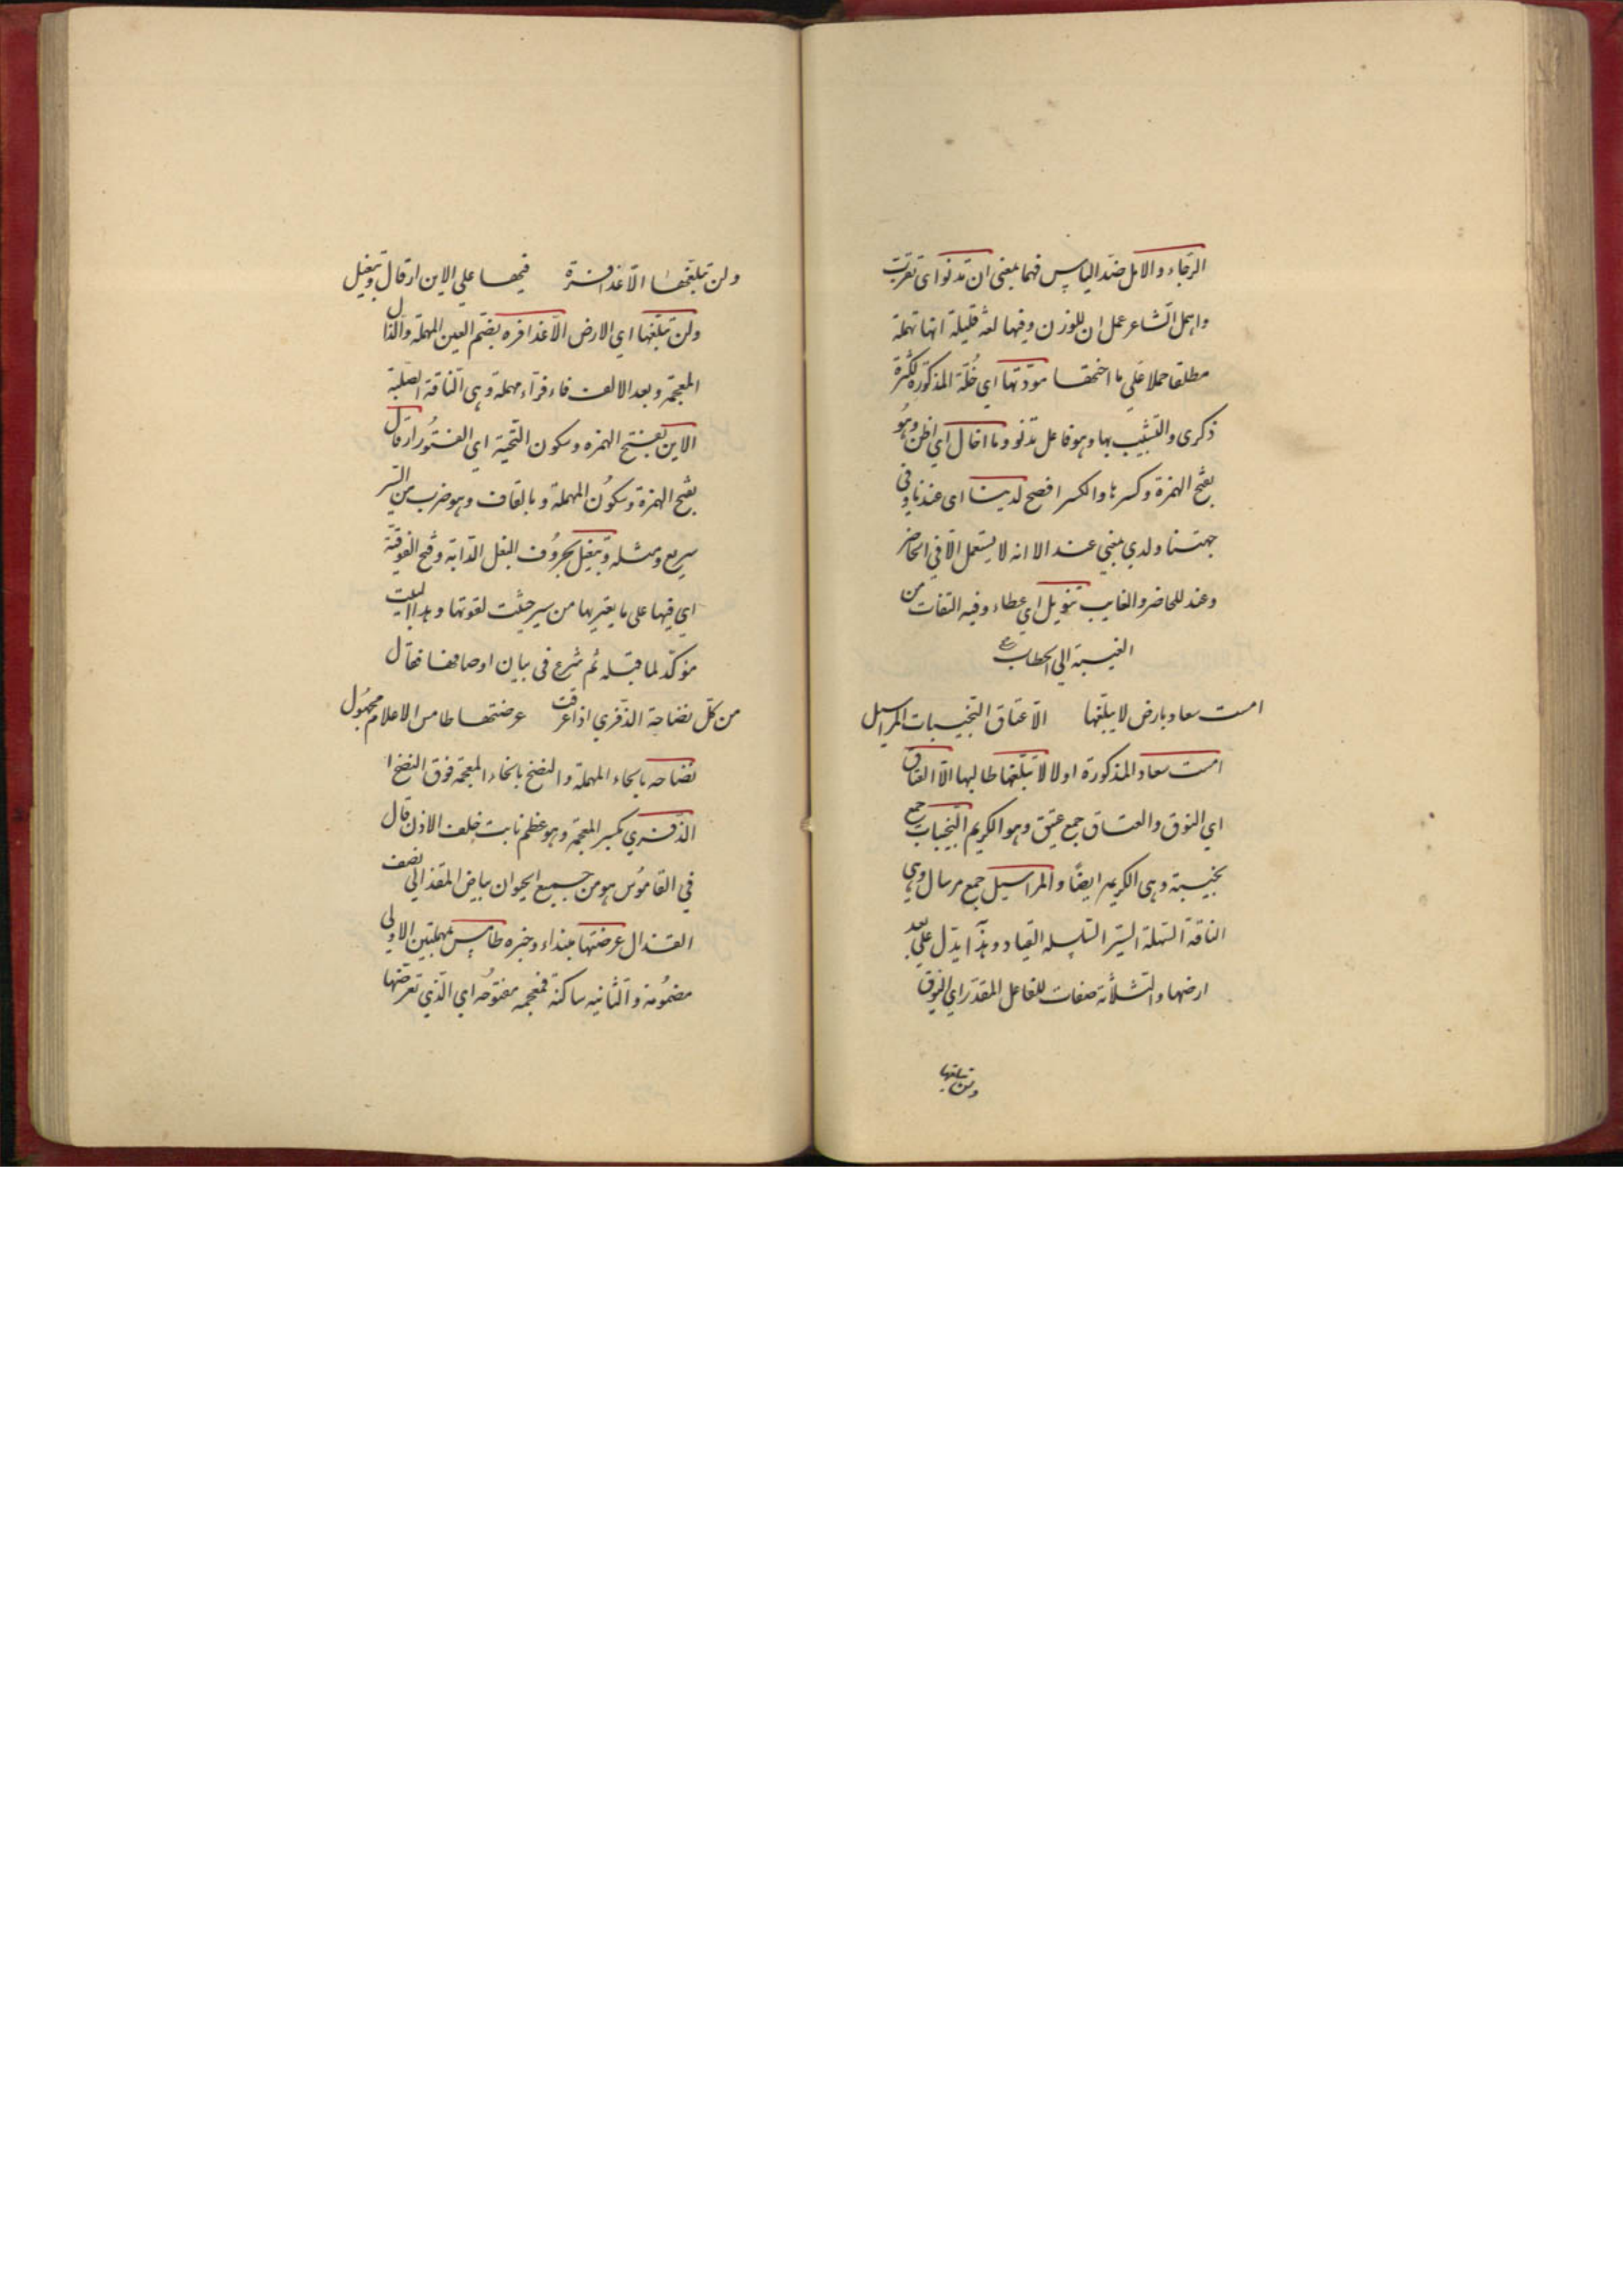 الرجاء والامل ضد الياس فهما بمعنى ان تدنو اى تقربت
واهمل الشاعر عمل ان للوزن وفيها لغة قليلة انها تهملة
مطلقا حملا على ما اختها مودتها اي خلة المذكورة لكثرة
ذكرى والتشبيب بها وهو فاعل تدنو وما اخال اي اظن وهو
بفتح الهمزة وكسرها والكسر افصح لدينا اى عندنا وفي
جهتنا ولدي بمعني عند الا انه لا يستعمل الا في الحاضر
وعند للحاضر والغايب تنويل اي عطاء وفيه التفات من
الغيبة الي الخطاب
امست سعاد بارض لا يبلغها الا عتاق النجيبات المراسيل
امست سعاد المذكورة اولا لا تبلغها طالبها الا العتاق
اي النوق والعتاق جمع عتيق وهو الكريم النجيبات جمع
نجيبة وهى الكريم ايضًا والمراسيل جمع مرسال وهي
الناقة السهلة السير السلسله القياد وهذا يدل علي بعد
ارضها والثلاثة صفات للفاعل المقدر اي النوق
ولن تبلغها
ولن تبلغها الا عذافرة فيها علي الاين ارقال وتبغيل
ولن تبلغها اي الارض الا عذافره بضم العين المهملة والذال
المعجمة وبعد الالف فاء فراء مهملة وهى الناقة الصلبة
الاين بفتح الهمزه وسكون التحية اي الفتور ارقال
بفتح الهمزة وسكون المهملة وبالقاف وهو ضرب من السير
سريع ومثله وتبغيل بحروف البغل الدابة وفتح الفوقية
اي فيها على ما يعتريها من سير حثت لقوتها وهذا البيت
موكد لما قبله ثم شرع فى بيان اوصافها فقال
من كل نضاحة الذفري اذا عرقت عرضتها طامس الاعلام مجهول
نضاحه بالحاء المهملة والنضخ بالخاء المعجمة فوق النضح ا
الذفري بكسر المعجمة وهو عظم نابت خلف الاذن قال
في القاموس هو من جميع الحيوان بياض المقذ الى نصف
القذال عرضتها مبنداء وخبره طامس بمهملتين الاولى
مضمومة والثانيه ساكنة فمعجمه مفتوحه اي الذي تعرضها